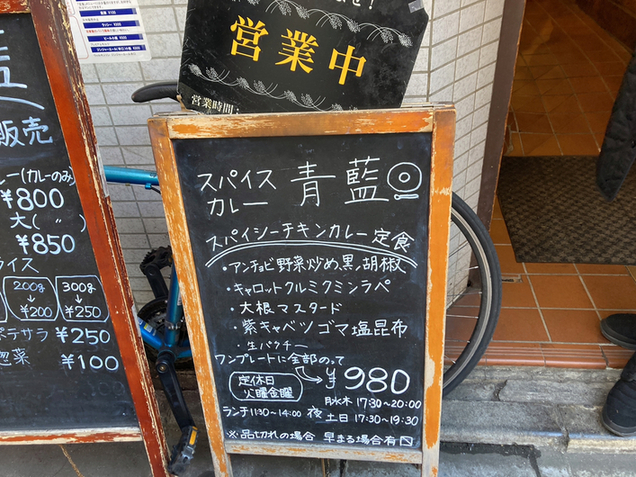 営業中
営業時間:
スパイス
カレー 青藍
スパイシーチキンカレー定食
・アンチョビ野菜炒め黒ノ胡椒
・キャロットクルミクミンラペ
・大根マスタード
・紫キャベツゴマ塩昆布
・生パクチー
ワンプレートに全部のって
¥980
定休日
火曜金曜
月水木 17:30~20:00
ランチ11:30~14:00 夜 土日 17:30~19:30
※品切れの場合 早まる場合有
藍
販売
レー(カレーのみ)
¥800
大(〃)
¥850
ライス
200g→¥200
300g→¥250
ポテサラ ¥250
惣菜 ¥100